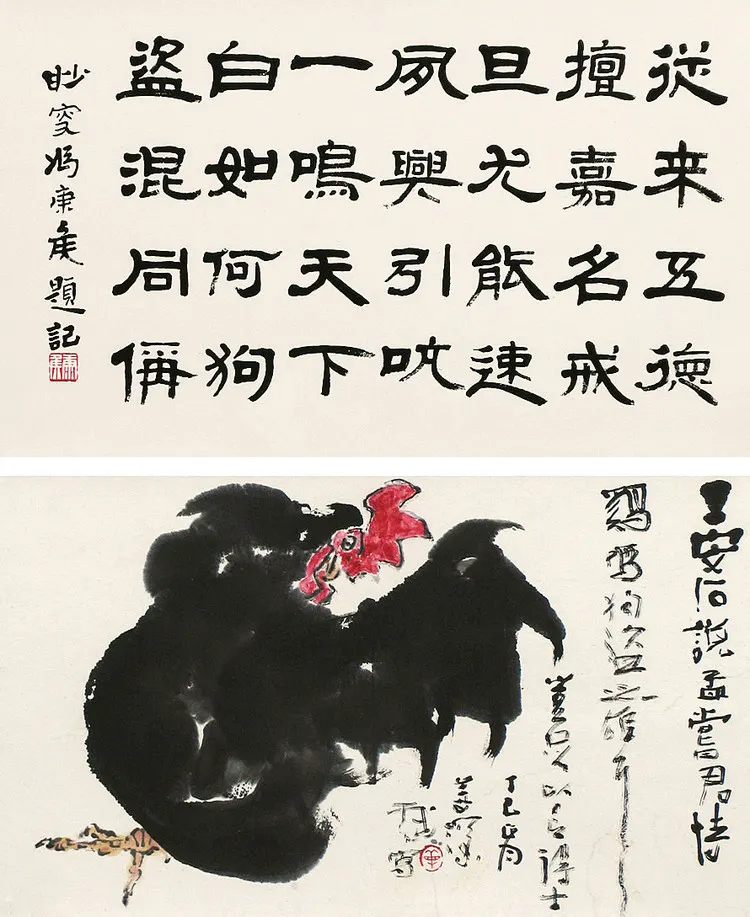 從来五德
擅嘉名戒
旦尤能速
夙興引吭
一鳴天下
白如何狗
盜混同偁
眇叟馮康矦題記
王安石說孟嘗君特
鷄鳴狗盜之雄耳
豈足以言得士
丁巳月
寫